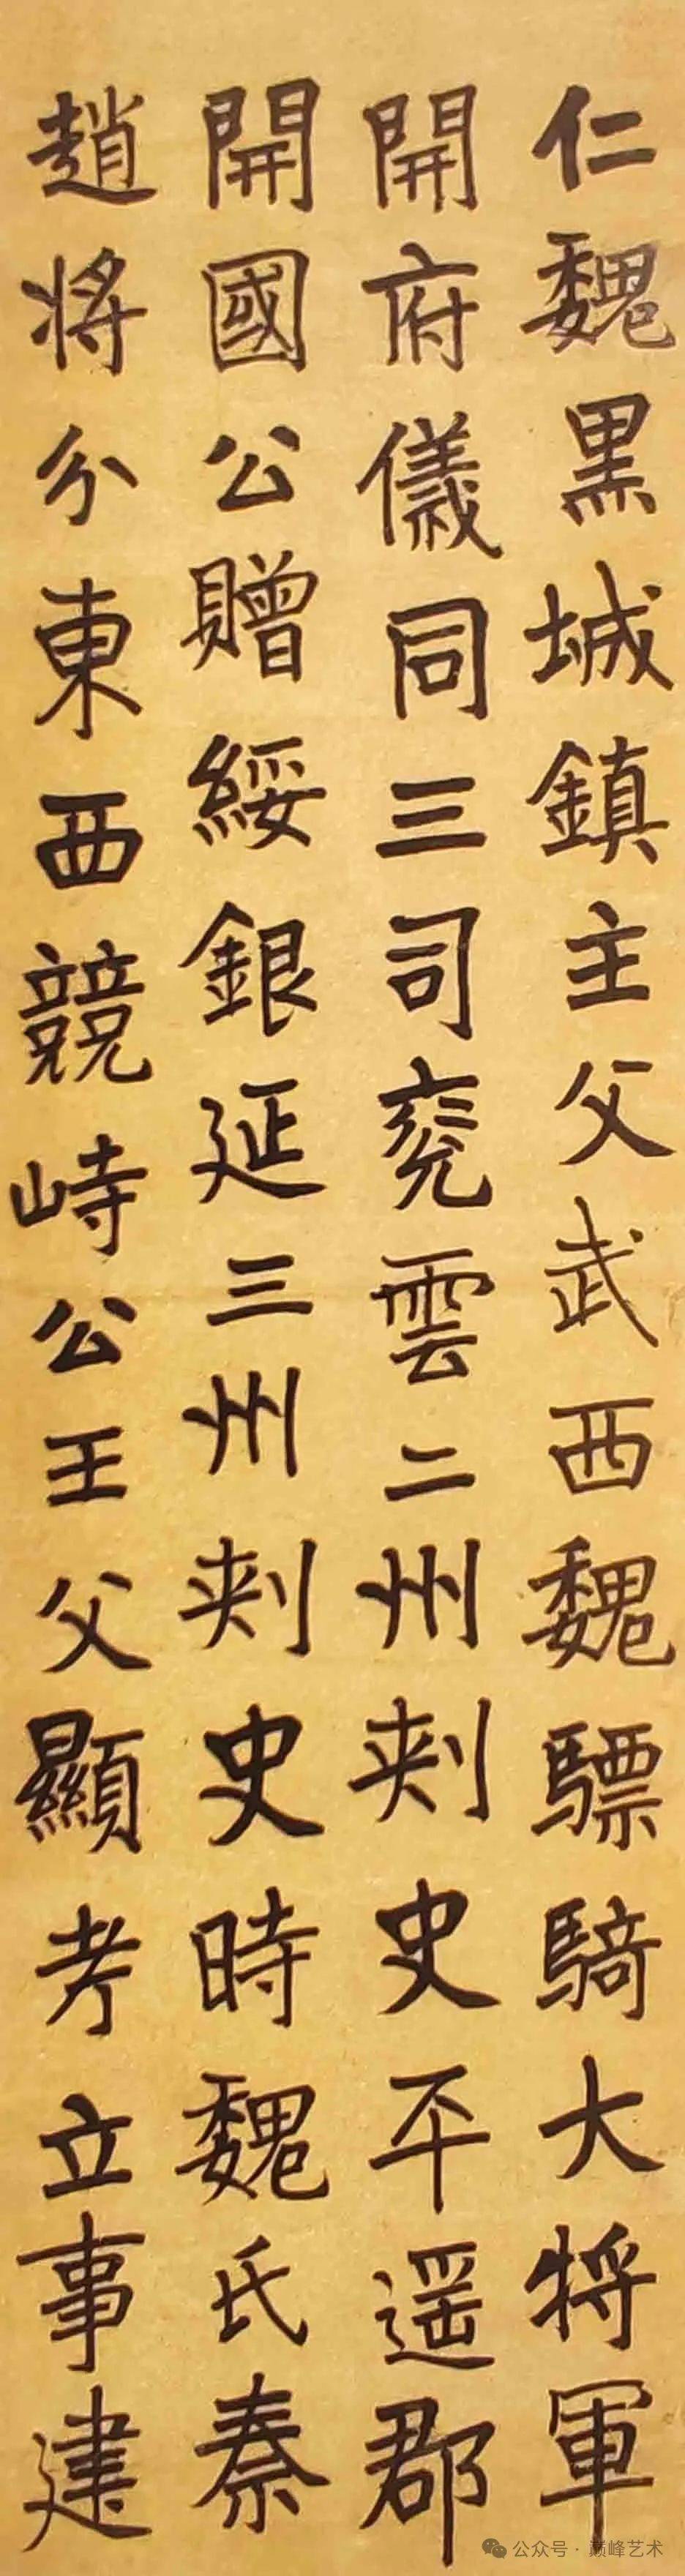 仁魏黑城鎮主父武西魏驃騎大将軍
開府儀同三司兖雲二州刾史平遥郡
開國公贈綏銀延三州刾史時魏氏秦
趙将分東西競峙公王父顯考立事建
公众号·巅峰艺术